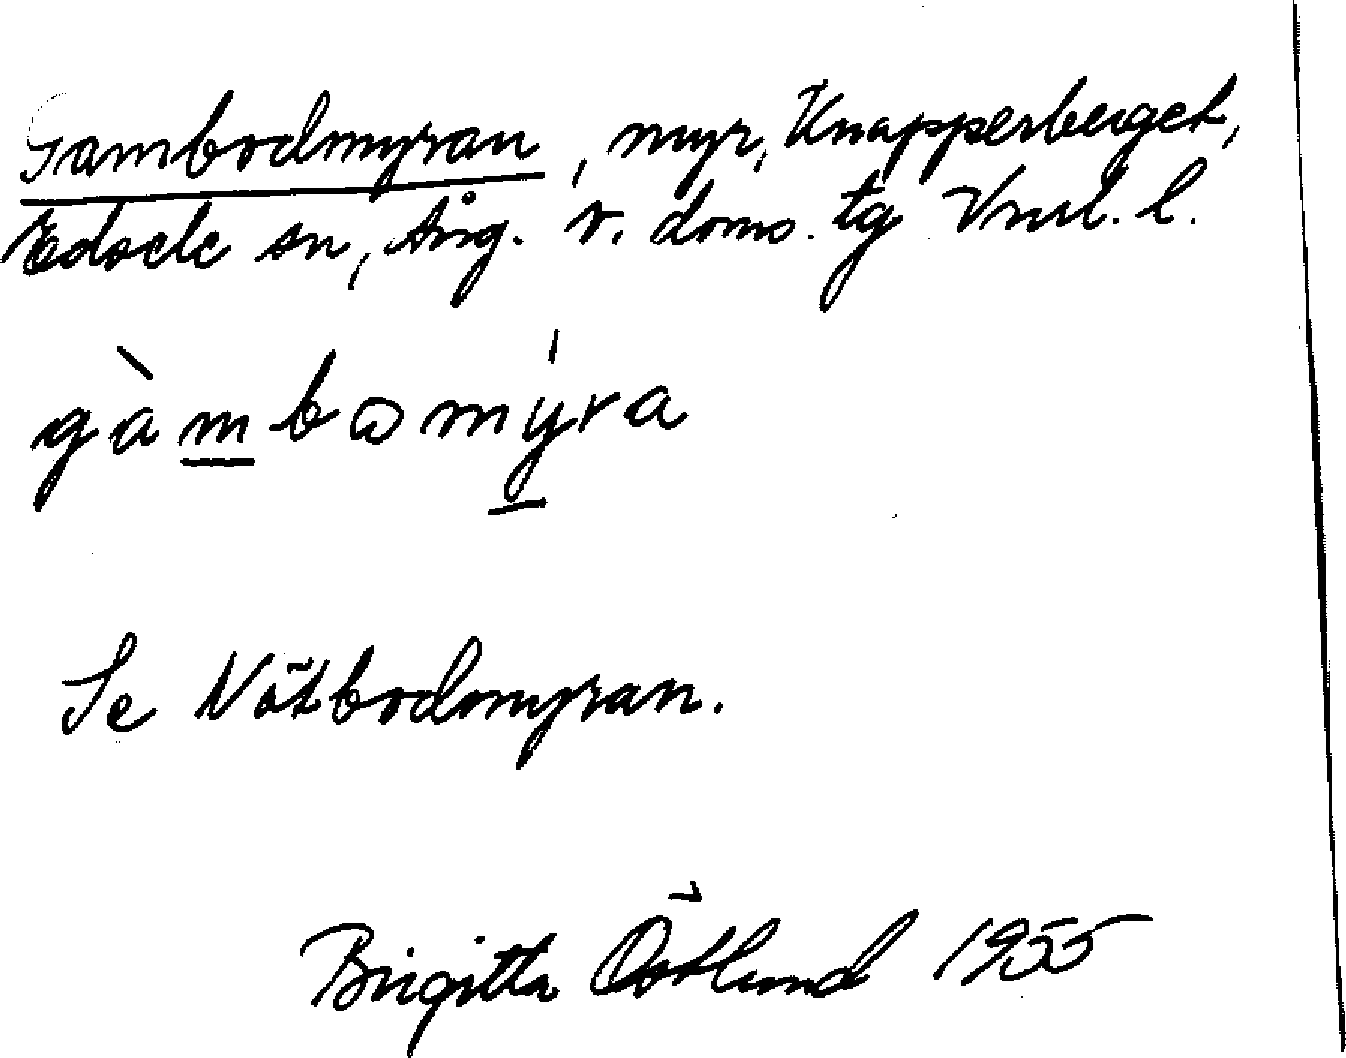 Gambodmyran, myr, Knapperberget,
Edsele sn, Ång. v. doms. tg Vml. l.
gàmbωmýra
Se Nätbodmyran.
Birgitta Östlund 1955